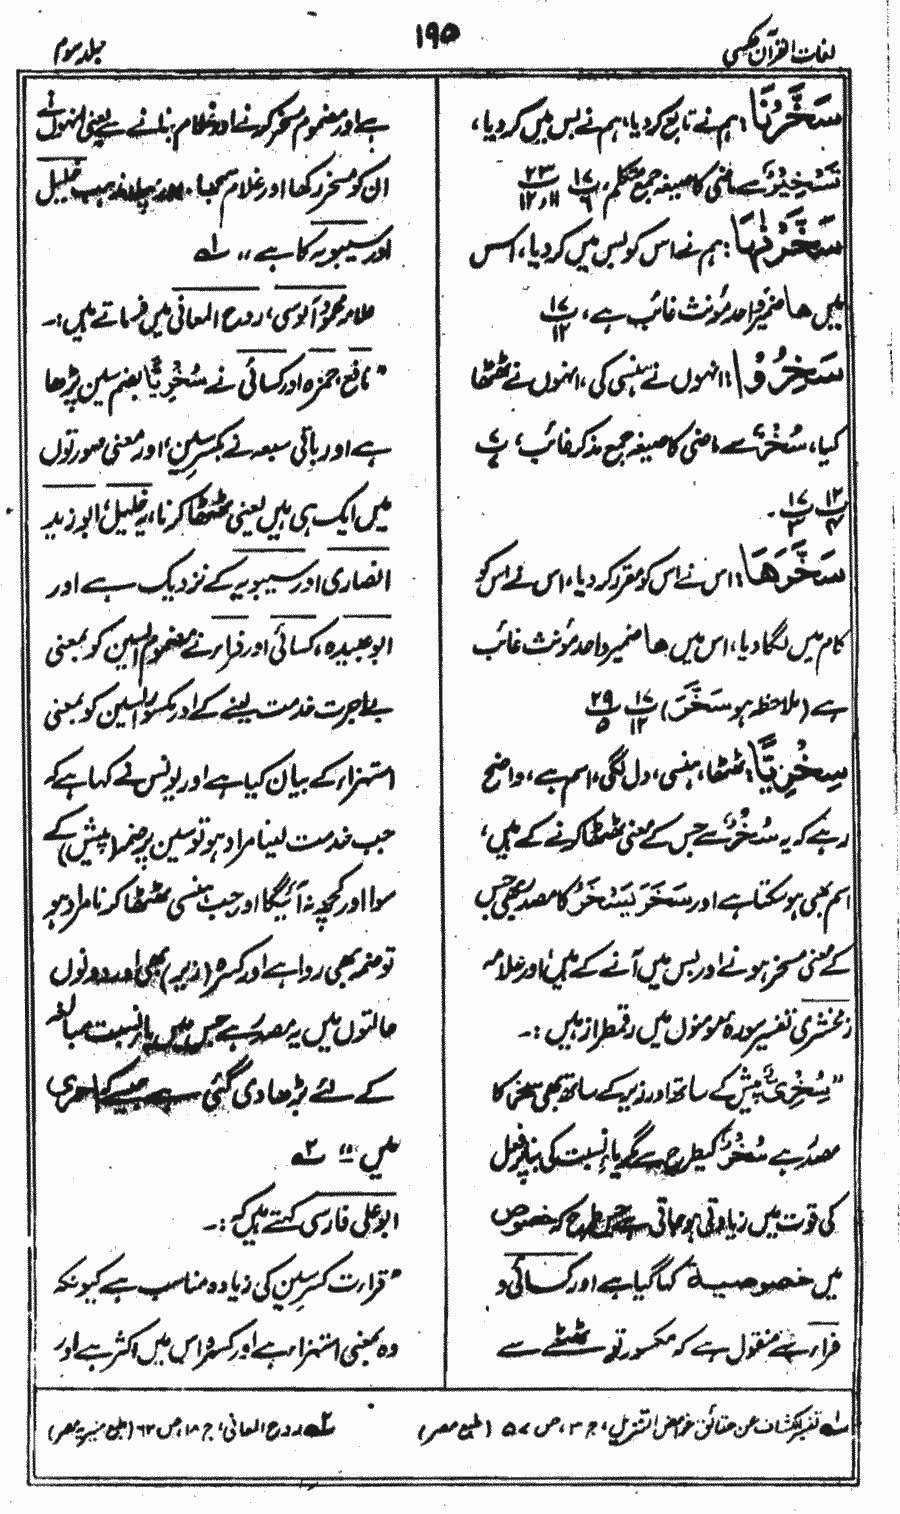 لغات القرآن مکمل
۱۹۵
جلد سوم
سَخَّرْنَا: ہم نے تابع کردیا، ہم نے بس میں کردیا،
تَسْخِیْرٌ سے ماضی کا صیغہ جمع متکلم، ۱۷/۹ ۲۳/۱۱،۱۲
سَخَّرْنٰہَا: ہم نے اس کو بس میں کردیا، اس
میں ھا ضمیر واحد مؤنث غائب ہے، ۱۷/۱۲
سَخِرُوْا: انہوں نے ہنسی کی، انہوں نے ٹھٹھا
کیا، سُخْرٌ سے ماضی کا صیغہ جمع مذکر غائب،
۱۲/۴ ۱۷/۳۔
سَخَّرَھَا: اس نے اس کو مقرر کردیا، اس نے اس کو
کام میں لگا دیا، اس میں ھا ضمیر واحد مؤنث غائب
ہے (ملاحظہ ہو سَخَّرَ) ۱۷/۱۲ ۲۹/۵
سِخْرِیًّا: ٹھٹھا، ہنسی، دل لگی، اسم ہے، واضح
رہے کہ یہ سُخْرٌ سے جس کے معنی ٹھٹھا کرنے کے ہیں،
اسم بھی ہوسکتا ہے اور سَخَرَ یَسْخَرُ کا مصدر بھی جس
کے معنی مسخر ہونے اور بس میں آنے کے ہیں، اور علامہ
زمخشری تفسیر سورہ مؤمنون میں رقمطراز ہیں :۔
”سُخْرِیّ پیش کے ساتھ اور زیر کے ساتھ بھی سخر کا
مصدر ہے سُخْرٌ کیطرح سے مگر یا نسبت کی بنا پر فعل
کی قوت میں زیادتی ہوجاتی ہے جس طرح کہ خصوص
میں خصوصیۃ کہا گیا ہے اور کسائی و
فراء سے منقول ہے کہ مکسور تو ٹھٹھے سے
ہے اور مضموم مسخر کرنے اور غلام بنانے سے یعنی انہوں نے
ان کو مسخر رکھا اور غلام سمجھا۔ اور پہلا مذہب خلیل
اور سیبویہ کا ہے ،، ۱ھ
علامہ محمود آلوسی، روح المعانی میں فرماتے ہیں :۔
” نافع، حمزہ اور کسائی نے سُخْرِیًّا بضم سین پڑھا
ہے اور باقی سبعہ نے بکسر سین، اور معنی دونوں صورتوں
میں ایک ہی ہیں یعنی ٹھٹھا کرنا، یہ خلیل، ابو زید
انصاری اور سیبویہ کے نزدیک ہے اور
ابو عبیدہ، کسائی اور فراء نے مضموم السین کو بمعنی
بے اجرت خدمت لینے کے اور مکسور السین کو بمعنی
استہزاء کے بیان کیا ہے اور یونس نے کہا ہے کہ
جب خدمت لینا مراد ہو تو سین پر ضمہ (پیش) کے
سوا اور کچھ نہ آئیگا اور جب ہنسی ٹھٹھا کرنا مراد ہو
تو ضمہ بھی روا ہے اور کسرہ (زیر) بھی اور دونوں
حالتوں میں یہ مصدر ہے جس میں یا نسبت مبالغہ
کے لئے بڑھا دی گئی ہے جیسے کہ احمری
میں “ ۲ھ
ابو علی فارسی کہتے ہیں کہ :۔
” قرارت کسر سین کی زیادہ مناسب ہے کیونکہ
وہ بمعنی استہزاء ہے اور کسرہ اس میں اکثر ہے اور
۱ھ تفسیر کشاف عن حقائق غوامض التنزیل، ج ۳، ص ۵۷ (طبع مصر)
۲ھ روح المعانی، ج ۱۸، ص ۶۳ (طبع منیریہ مصر)